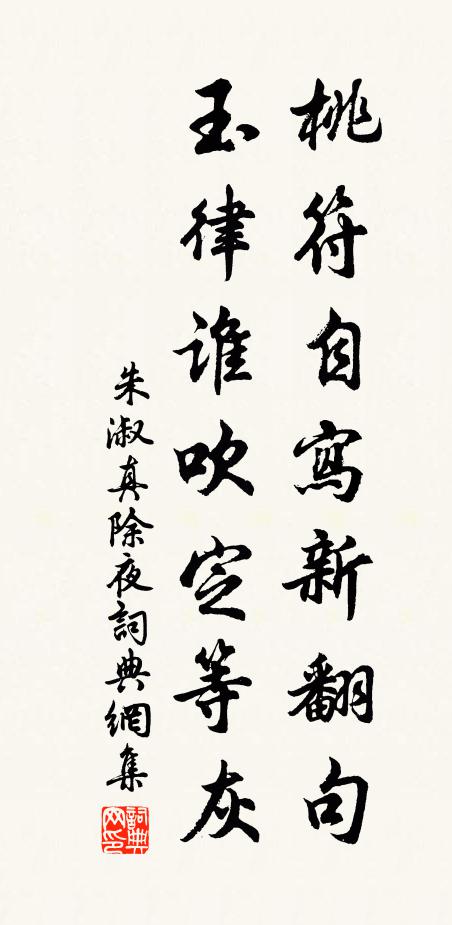 桃符自寫新翻句
玉律誰吹定等灰
朱淑真除夜詞典網集
詞典网印